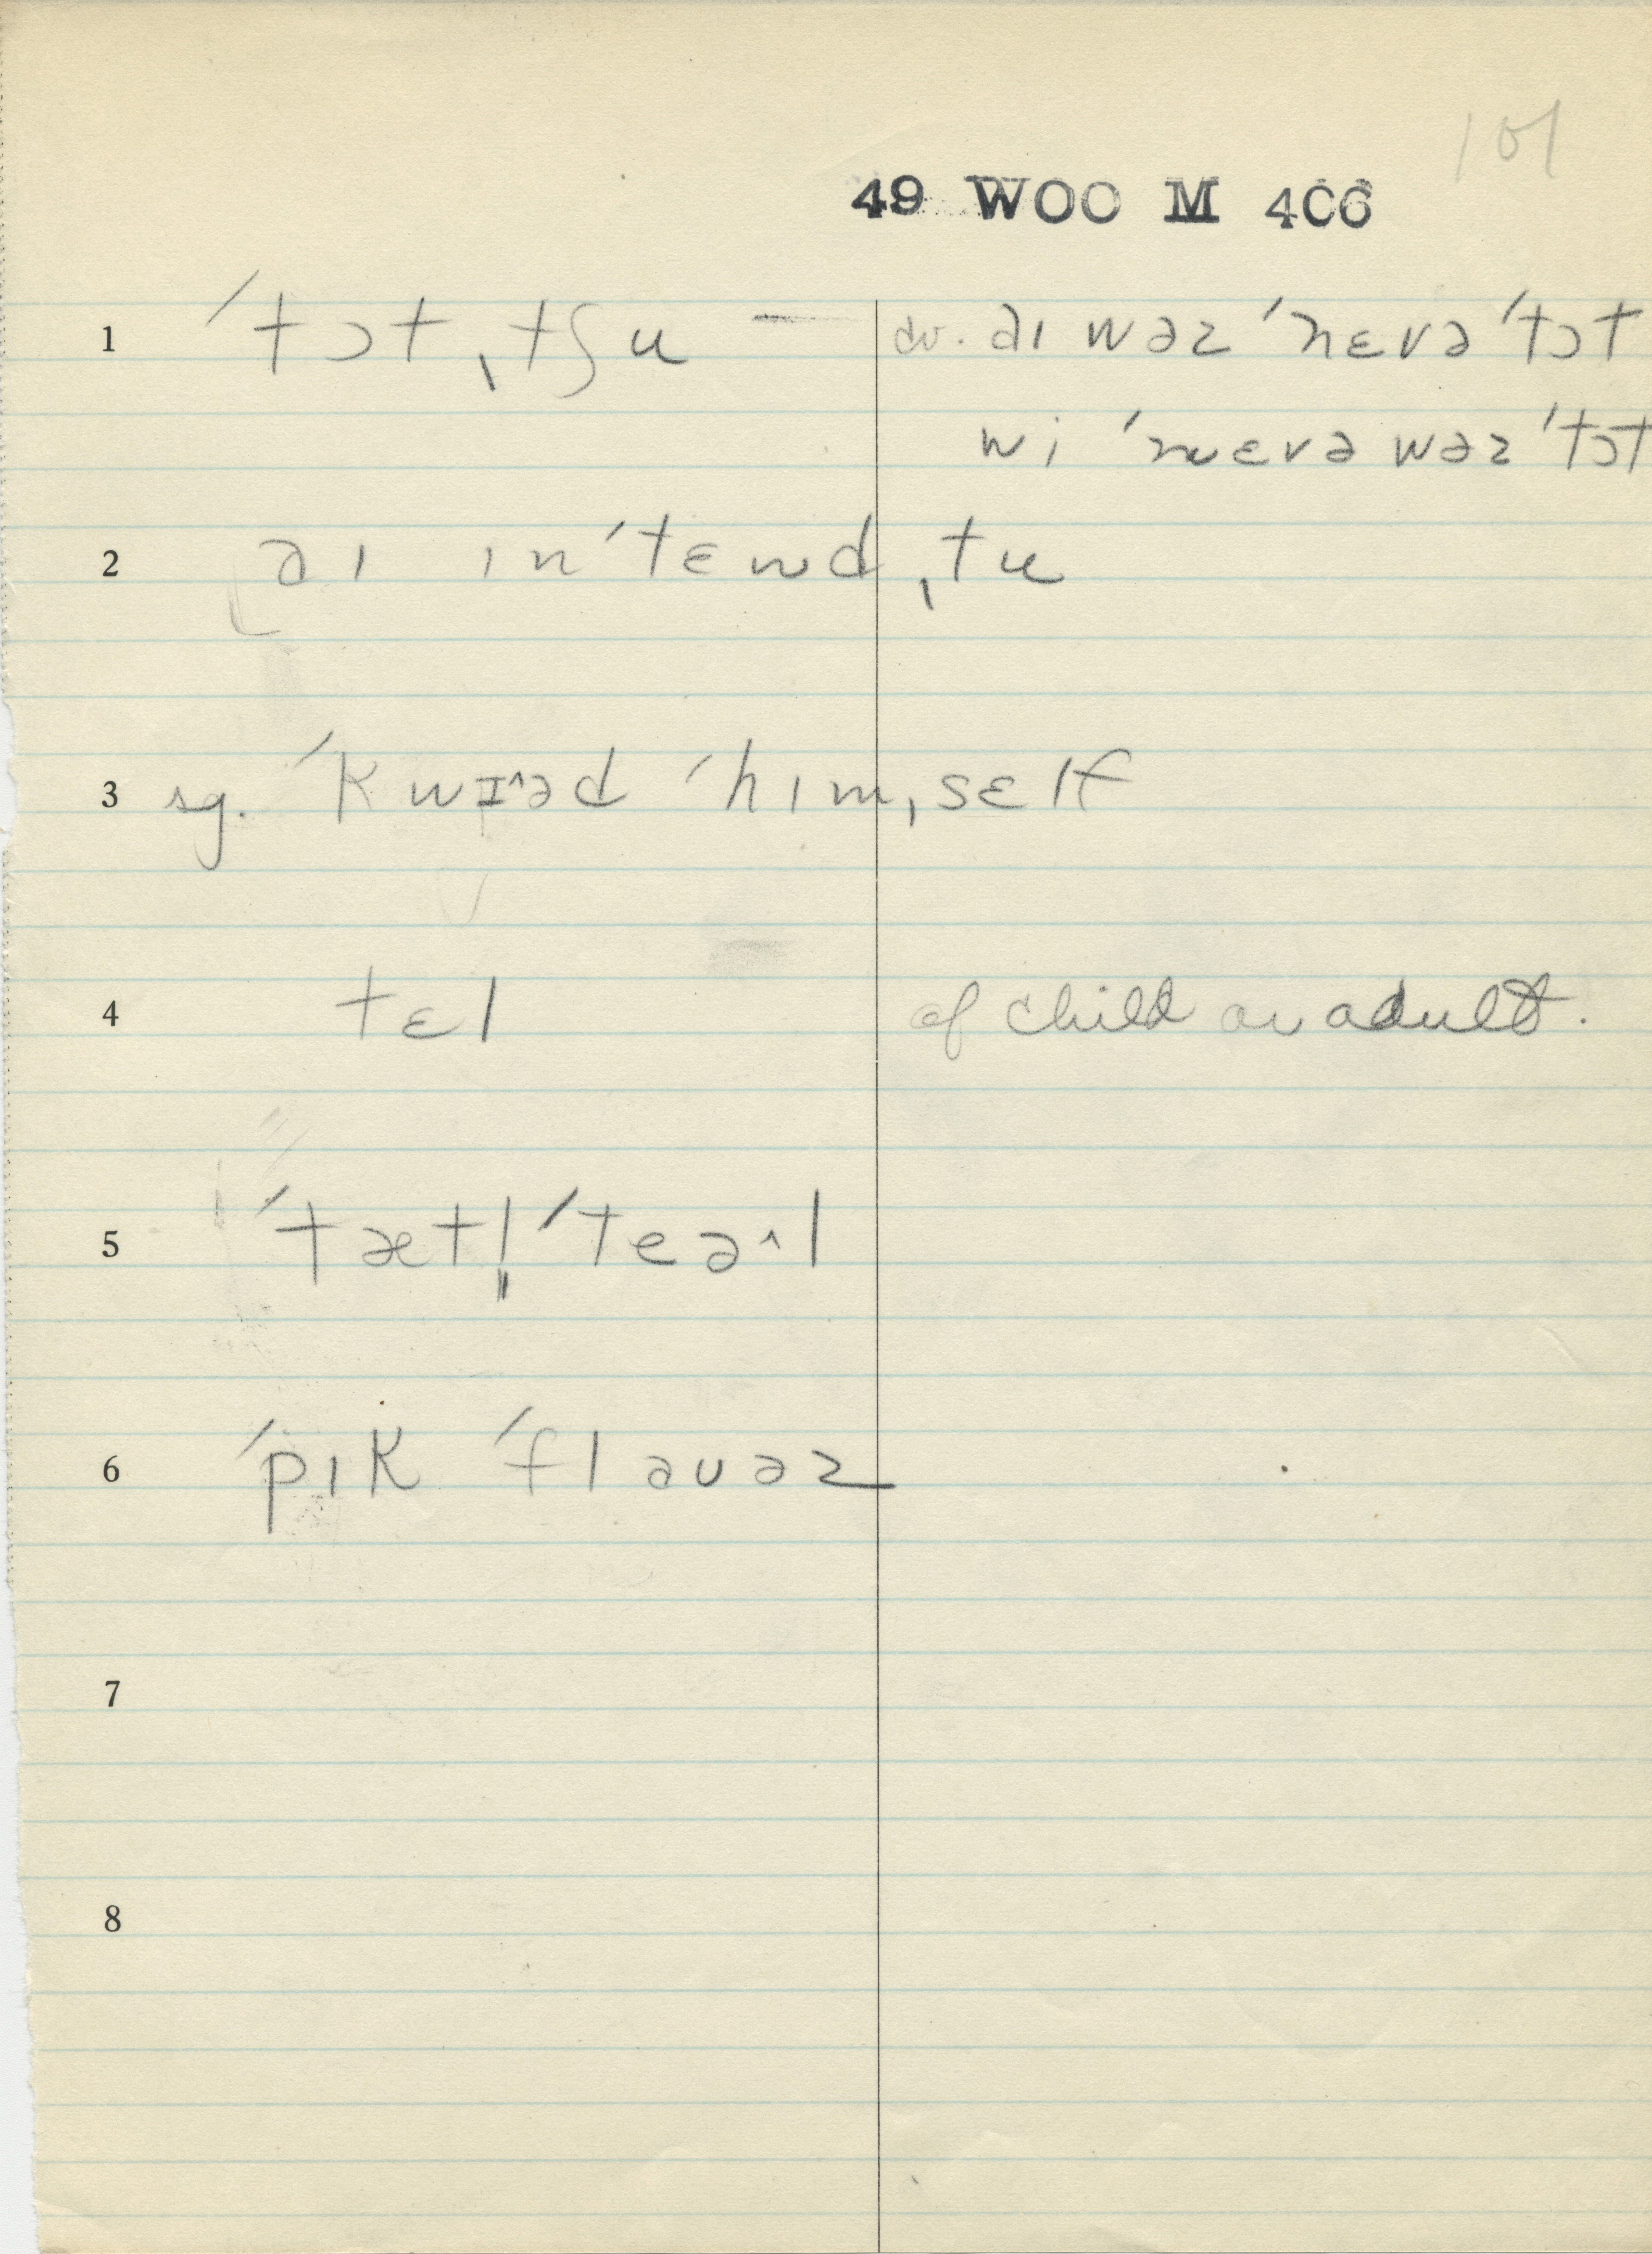 101
49 WOO M 406
1 ˈtɔt ˌtʃu – cv. aɪ wəz ˈnɛvə ˈtɔt
wi ˈnɛvə wəz ˈtɔt
2 əɪ ɪnˈtɛnd ˌtu
3 sg. ˈkwɪ^əd ˈhɪmˌsɛlf
4 tɛl of child or adult.
5 ˈtætl̩ ˈteə^l
6 ˈpɪk ˈflaʊəz
7
8